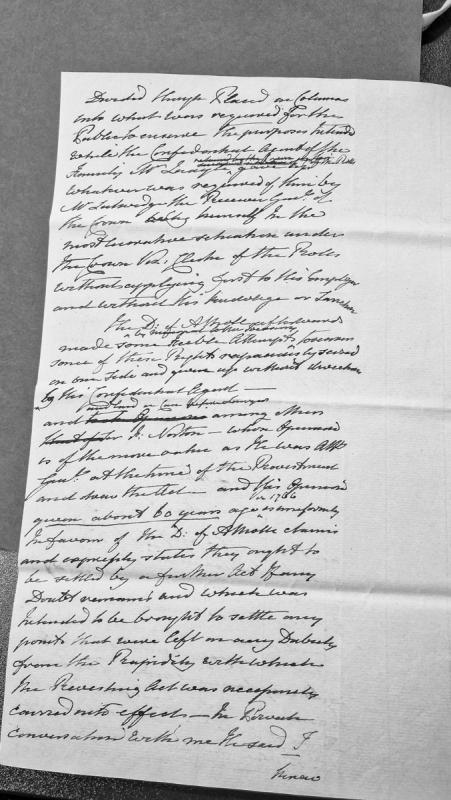 Divided though Placed in Columns
into what was required for the
Public to ensure the purposes Intended
while the Confidential Agent of the
Family Mr gave up
whatever was required of him by
Mr Lutwidge the Receiver Genl. of
the Crown himself in the
most lucrative situation under
the Crown Viz: Clerk of the Rolls
without applying first to his Employer
and without his knowledge or Sanction
The D: of Atholl afterwards
made some feeble Attempts to
some of these Rights rapaciously seized
on one side and given up without direction
by his Confidential Agent —
and among them
Sr. J. Norton — whose Opinion
is of the more value as He was Atty
Genl. at the time of the Revestment
and drew the Act — and His Opinion
in 1786
given about 60 years ago is uniformly
In favour of the D: of Atholls claims
and expressly states they ought to
be settled by a further Act If any
Doubt remained and which was
Intended to be brought to settle any
points that were left in any Dubiety
from the Rapidity with which
the Revesting Act was
carried into effect — In Private
conversation with me He said I
knew